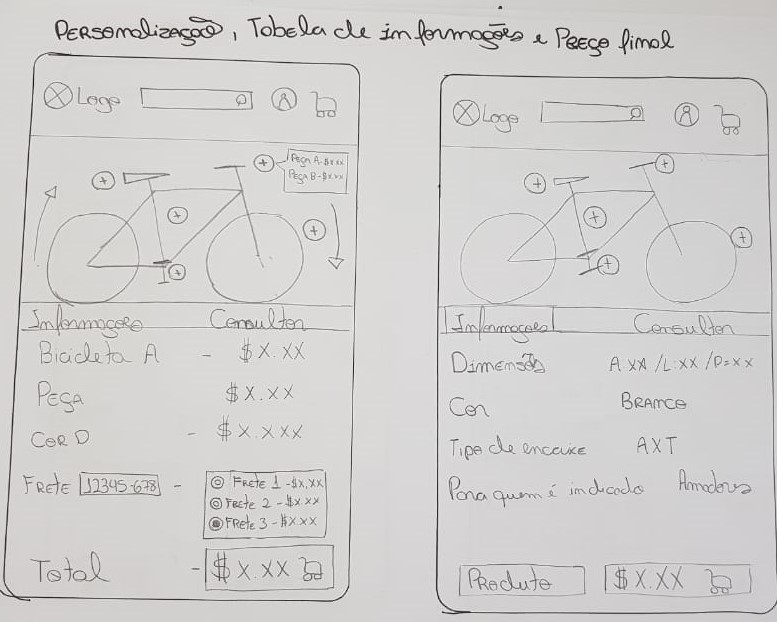 Personalização, Tabela de informações e Preço final
Logo
Peça A - $xxx
Peça B - $xxx
Informações Consultar
Bicicleta A - $X.XX
Peça $X.XX
Cor D - $X.XXX
Frete 12345-678 - Frete 1 - $x.xx
Frete 2 - $x.xx
Frete 3 - $x.xx
Total - $X.XX
Logo
Informações Consultar
Dimensão A:XX /L:XX /P=XX
Cor Branco
Tipo de encaixe AXT
Para quem é indicado Amadores
Produto $X.XX